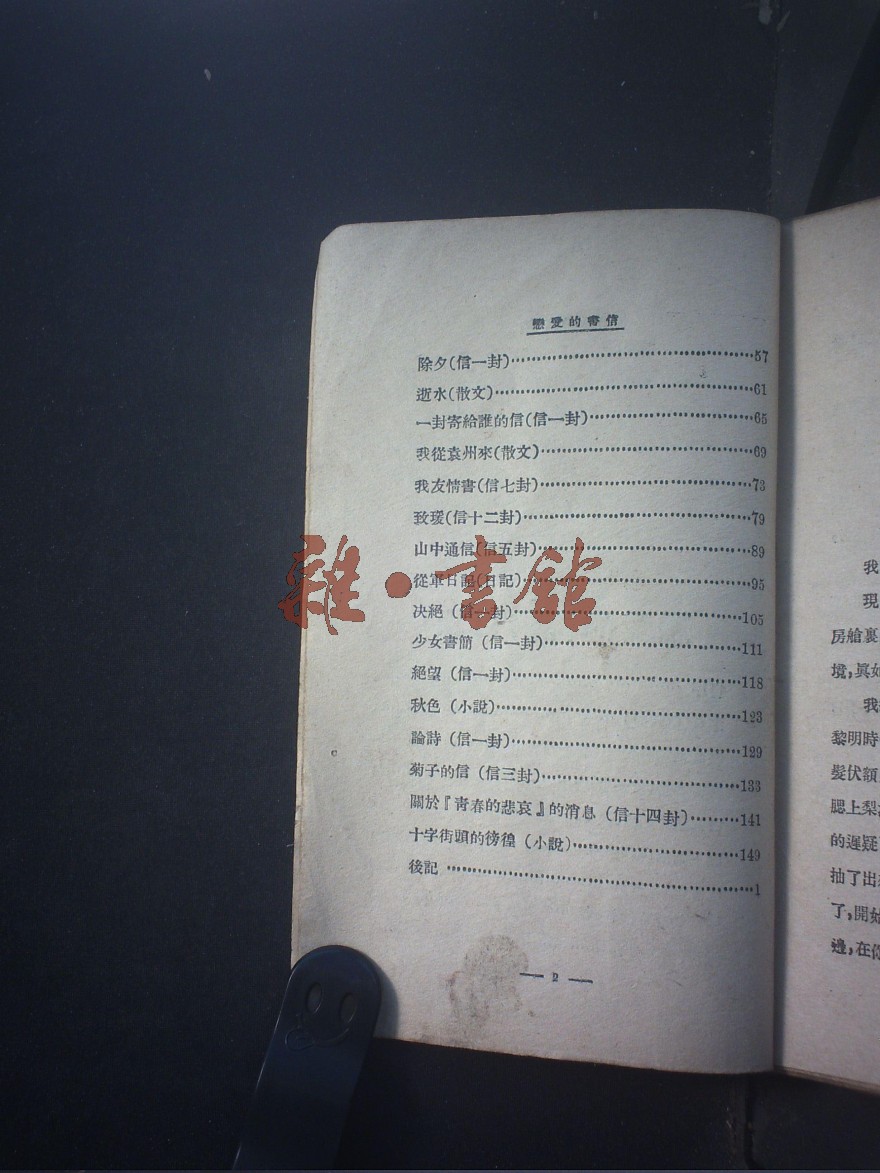 戀愛的書信
除夕(信一封)……57
逝水(散文)……61
一封寄給誰的信(信一封)……65
我從袁州來(散文)……69
我友情書(信七封)……73
致瑗(信十二封)……79
山中通信(信五封)……89
從軍日記(日記)……95
决絕(信一封)……105
少女書簡(信一封)……111
絕望(信一封)……118
秋色(小說)……123
論詩(信一封)……129
菊子的信(信三封)……133
關於『青春的悲哀』的消息(信十四封)……141
十字街頭的徬徨(小說)……149
後記……1
— 2 —
雜·書館
我
現
房艙裏
境,眞如
我
黎明時
髮伏額
腮上梨
的遲疑
抽了出
了,開始
邊,在你